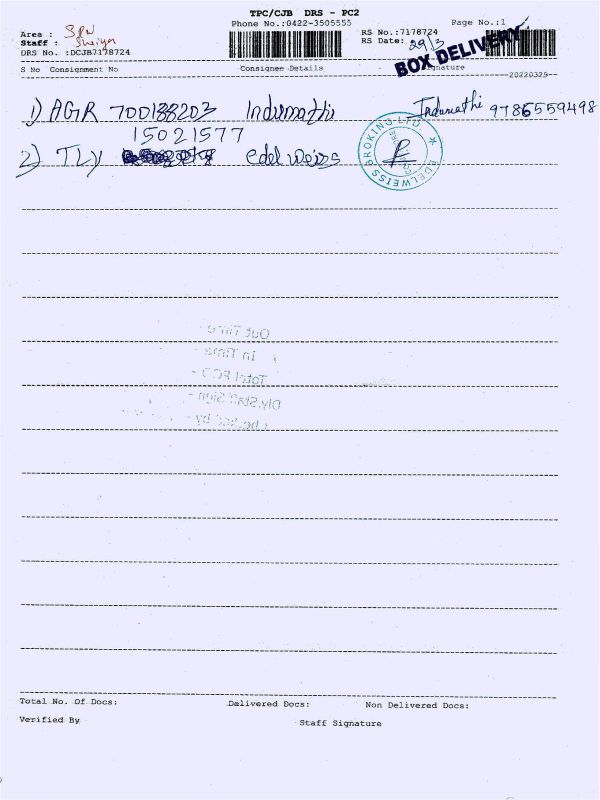 TPC/CJB DRS - PC2
Phone No.:0422-3505555
Page No.:1
Area :
Staff :
DRS No.:DCJB7178724
RS No.:7178724
RS Date: 29/3
BOX DELIVERY
S No Consignment No Consignee Details Signature
20220329
1) AGR 700188203 Indumathi Indumathi 9786559498
15021577
2) TLY edelweiss
EDELWEISS BROKING LTD
Out Time -
In Time -
Total POD -
Dly.Staff Sign -
Checked by -
Total No. Of Docs: Delivered Docs: Non Delivered Docs:
Verified By Staff Signature